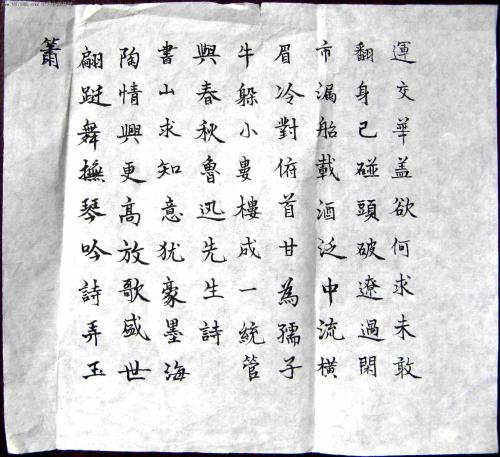 運交華盖欲何求未敢
翻身己碰頭破遼過閑
市漏船載酒泛中流橫
眉冷對俯首甘為孺子
牛躲小婁樓成一統管
與春秋魯迅先生詩
書山求知意犹豪墨海
陶情興更高放歌盛世
翩跹舞撫琴吟詩弄玉
簫